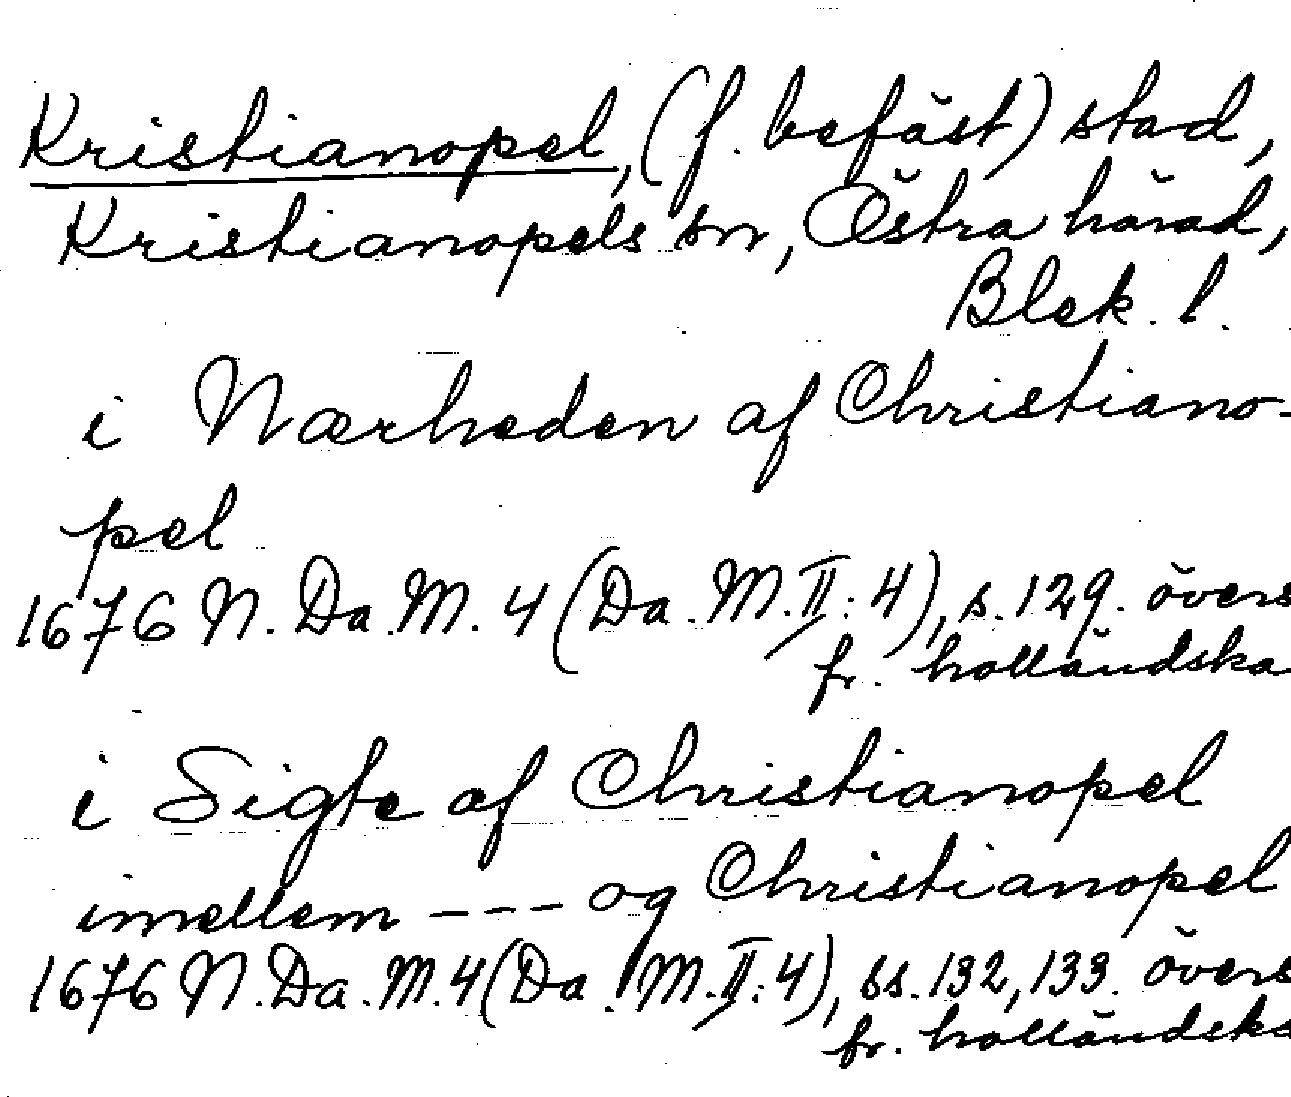 Kristianopel, (f. befäst) stad,
Kristianopels sn, Östra härad,
Blek. l.
i Nærheden af Christiano-
pel
1676 N. Da. M. 4 (Da. M. II: 4), s. 129. övers
fr. holländska
i Sigte af Christianopel
imellem --- og Christianopel
1676 N. Da. M. 4 (Da. M. II: 4), ss. 132, 133. övers
fr. holländska